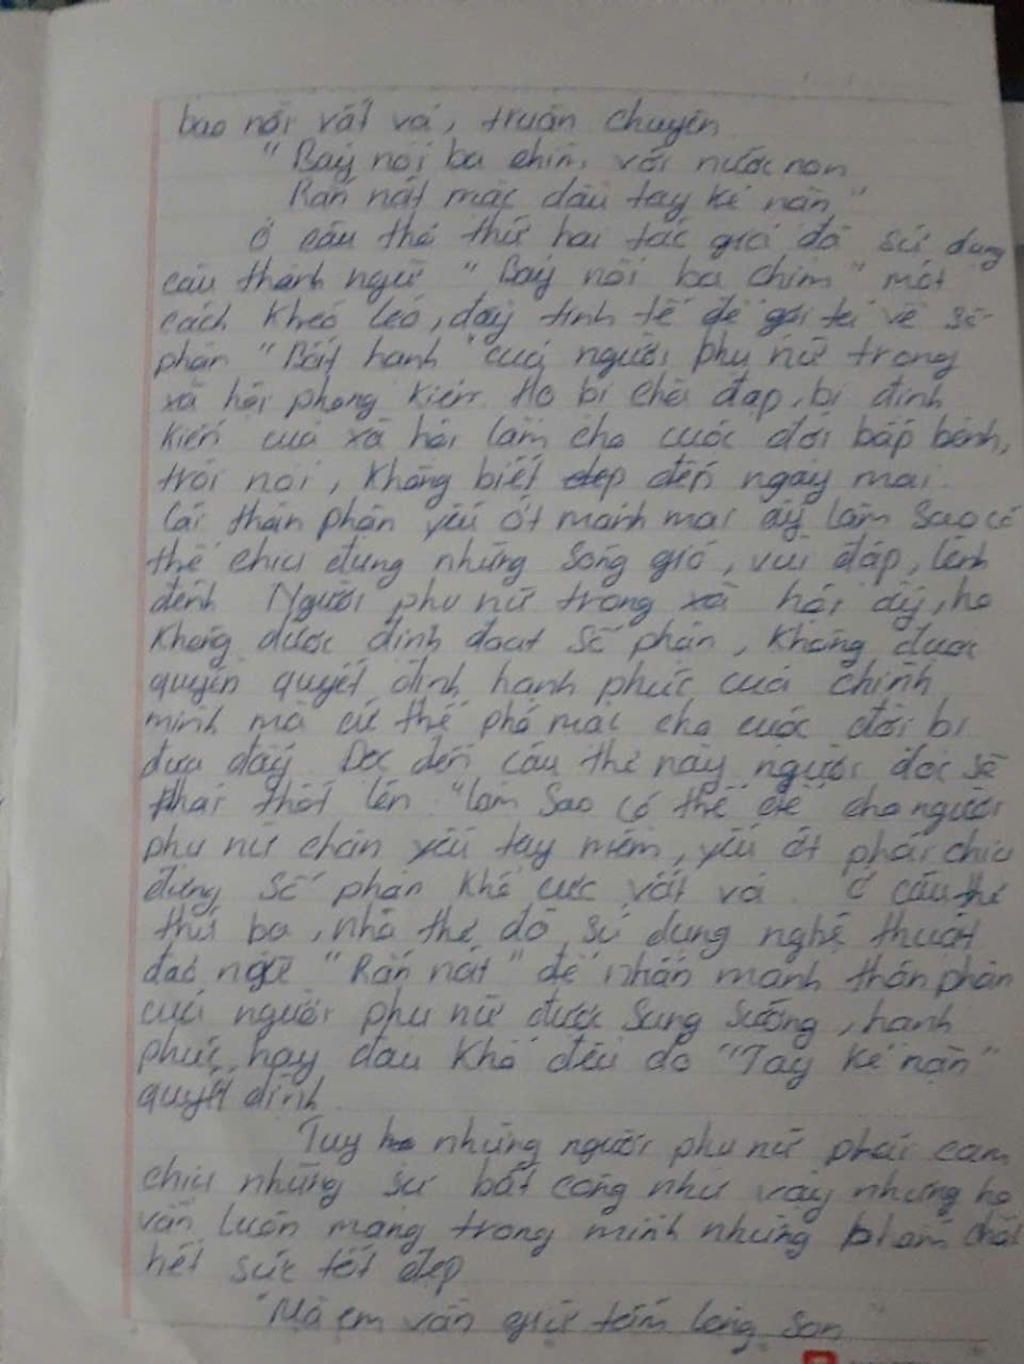 bao nỗi vất vả, truân chuyên
"Bảy nổi ba chìm với nước non
Rắn nát mặc dầu tay kẻ nặn"
Ở câu thơ thứ hai tác giả đã sử dụng
câu thành ngữ "Bảy nổi ba chìm" một
cách khéo léo, đầy tinh tế để gợi tả về số
phận "Bất hạnh" của người phụ nữ trong
xã hội phong kiến. Họ bị chà đạp, bị định
kiến của xã hội làm cho cuộc đời bấp bênh,
trôi nổi, không biết đến ngày mai.
Cái thân phận yếu ớt mảnh mai ấy làm sao có
thể chịu đựng những sóng gió, vùi dập, lênh
đênh. Người phụ nữ trong xã hội ấy, họ
không được định đoạt số phận, không được
quyền quyết định hạnh phúc của chính
mình mà cứ thế phó mặc cho cuộc đời bị
đưa đẩy. Đọc đến câu thơ này người đọc sẽ
phải thốt lên "làm sao có thể để cho người
phụ nữ chân yếu tay mềm, yếu ớt phải chịu
đựng số phận khổ cực vất vả. Ở câu thơ
thứ ba, nhà thơ đã sử dụng nghệ thuật
đảo ngữ "Rắn nát" để nhấn mạnh thân phận
của người phụ nữ được sung sướng, hạnh
phúc hay đau khổ đều do "Tay kẻ nặn"
quyết định.
Tuy những người phụ nữ phải cam
chịu những sự bất công như vậy nhưng họ
vẫn luôn mang trong mình những phẩm chất
hết sức tốt đẹp
"Mà em vẫn giữ tấm lòng son"